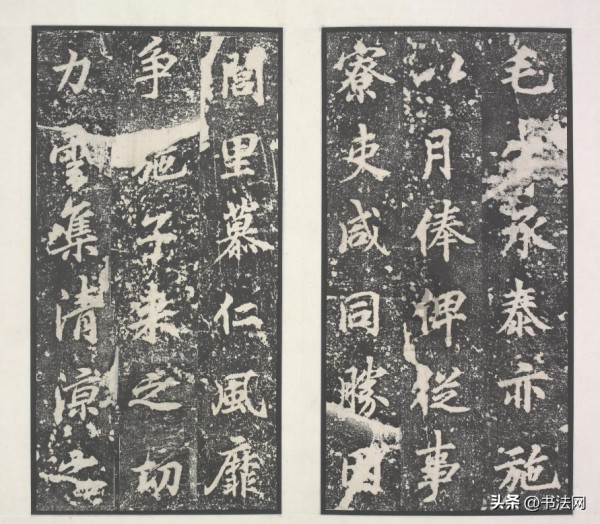 毛承泰亦施
以月俸俾從事
寮吏咸同勝因
閭里慕仁風靡
爭施子来之切
力雲集清涼之
头条 @书法网